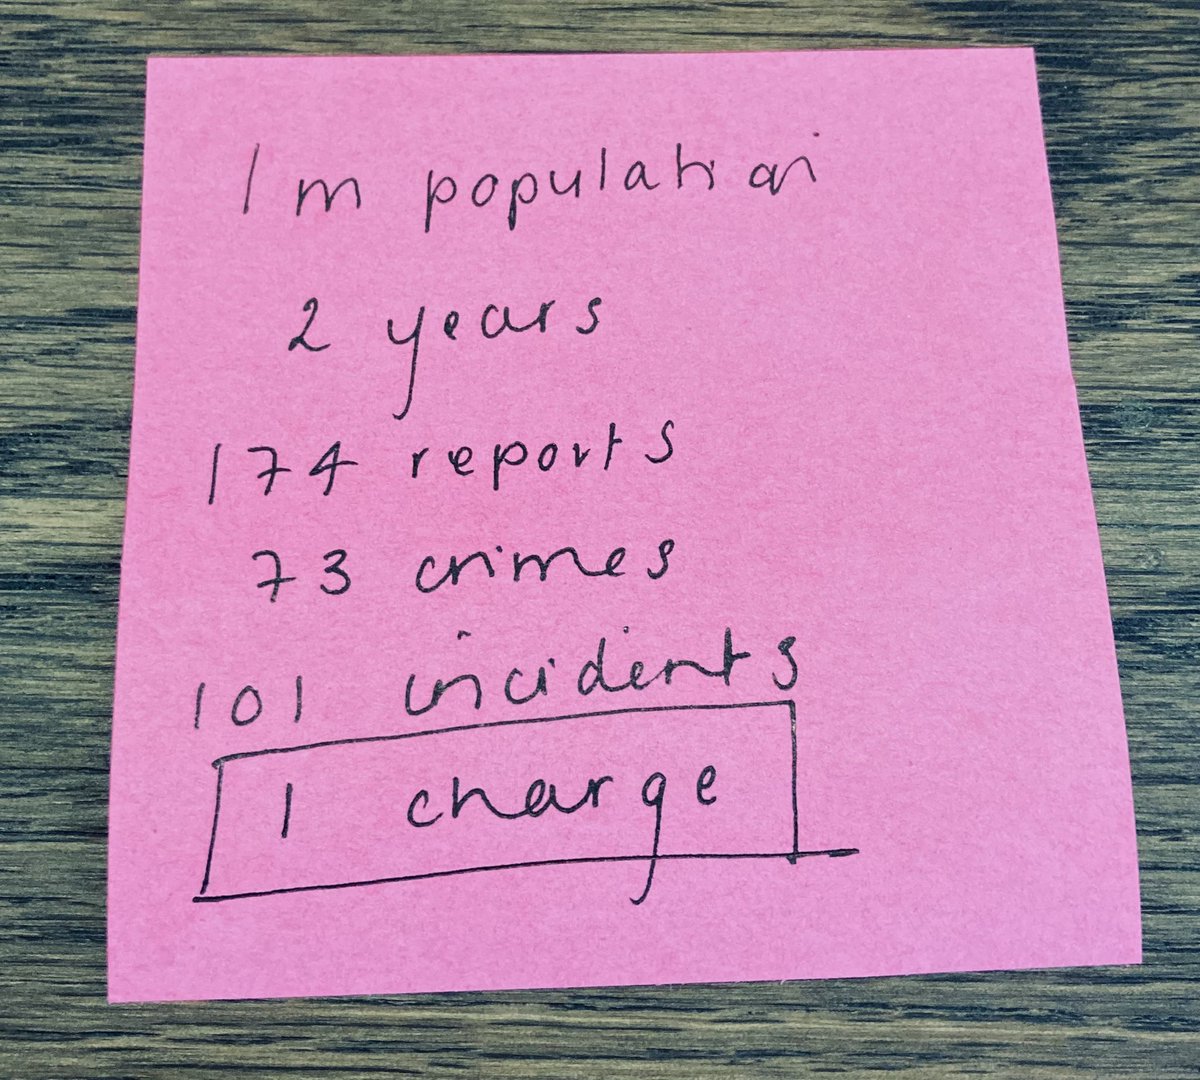 1m population
2 years
174 reports
73 crimes
101 incidents
1 charge